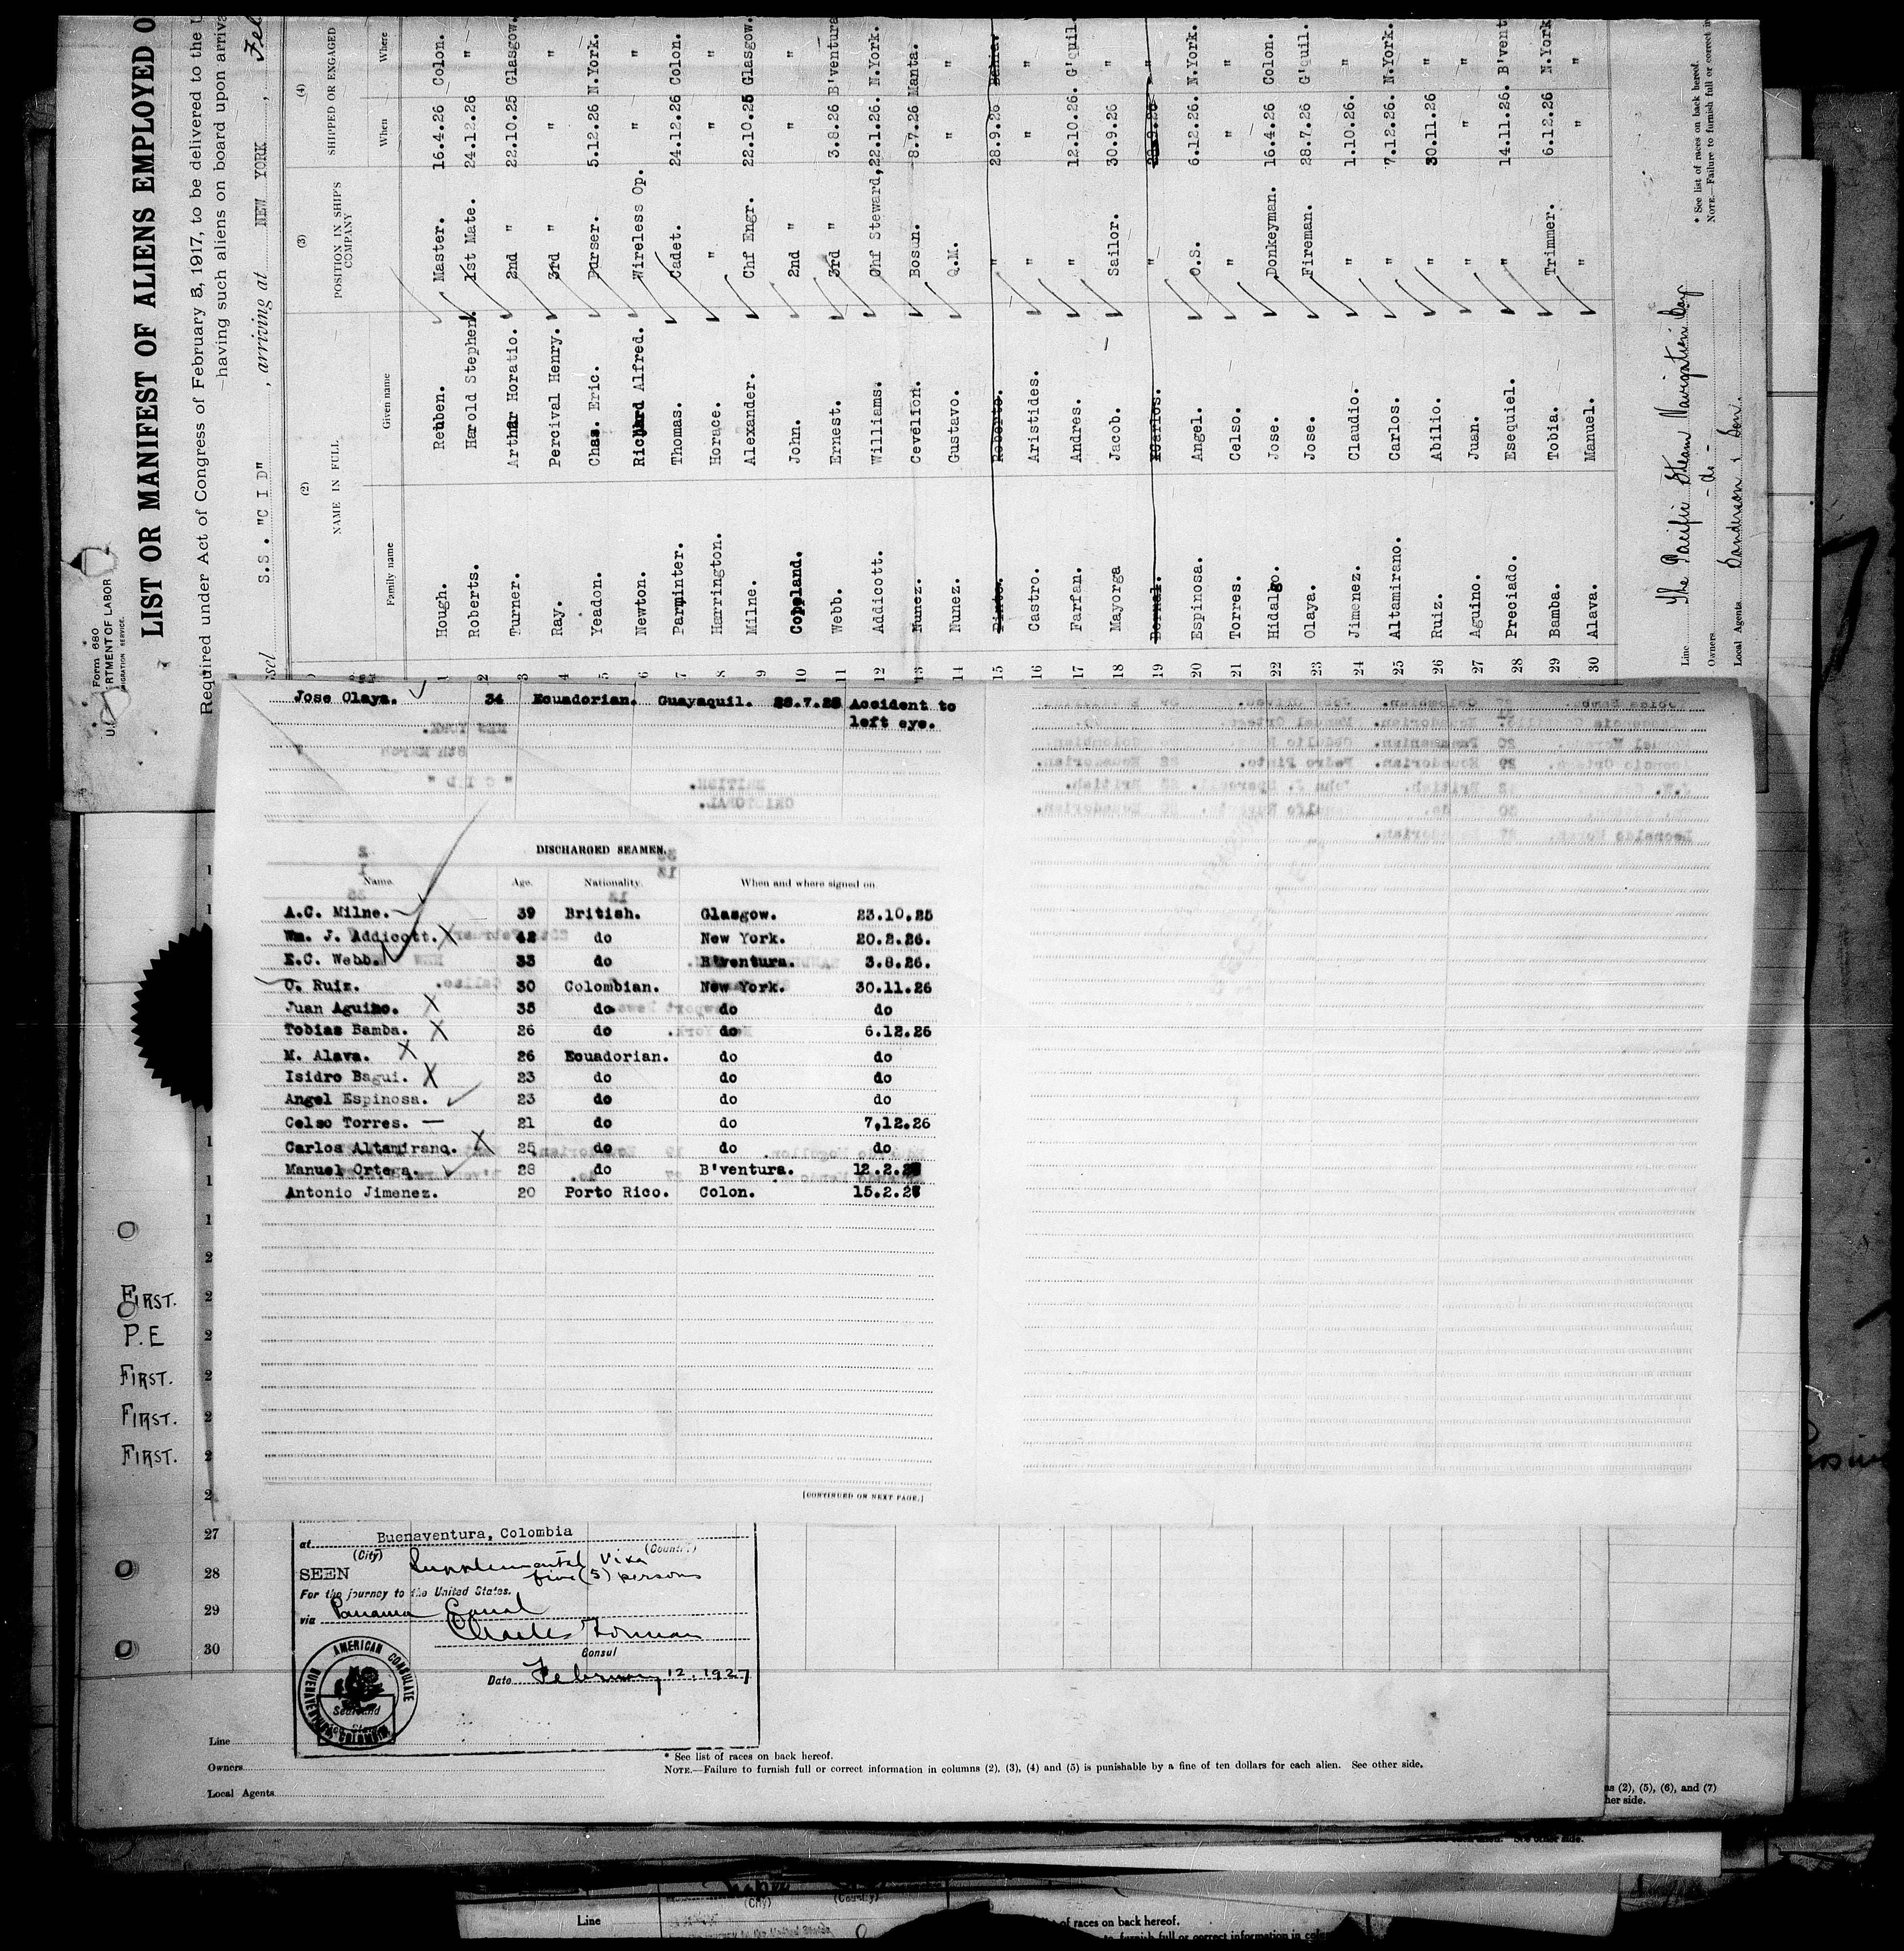 Form 680
U. S. DEPARTMENT OF LABOR
IMMIGRATION SERVICE.
LIST OR MANIFEST OF ALIENS EMPLOYED O
Required under Act of Congress of February 5, 1917, to be delivered to the U
having such aliens on board upon arriva
sel S.S. "C I D" , arriving at NEW YORK , Fe
(2) (3) (4)
NAME IN FULL POSITION IN SHIP'S COMPANY SHIPPED OR ENGAGED
Family name Given name When Where
1 Hough. Reuben. Master. 16.4.26 Colon.
2 Roberts. Harold Stephen. 1st Mate. 24.12.26 "
3 Turner. Arthur Horatio. 2nd " 22.10.25 Glasgow.
4 Ray. Percival Henry. 3rd " " "
5 Yeadon. Chas. Eric. Purser. 5.12.26 N.York.
6 Newton. Richard Alfred. Wireless Op. " "
7 Parminter. Thomas. Cadet. 24.12.26 Colon.
8 Harrington. Horace. " " "
9 Milne. Alexander. Chf Engr. 22.10.25 Glasgow.
10 Copeland. John. 2nd " " "
11 Webb. Ernest. 3rd " 3.8.26 B'ventura
12 Addicott. Williams. Chf Steward, 22.1.26. N.York.
13 Nunez. Cevelion. Bosun. 8.7.26 Manta.
14 Nunez. Gustavo. Q.M. " "
15 Pinto. Roberto. " 28.9.26 Bahia.
16 Castro. Aristides. " " "
17 Farfan. Andres. " 12.10.26. G'quil.
18 Mayorga Jacob. Sailor. 30.9.26 "
19 Bernal. Carlos. " 29.9.26 "
20 Espinosa. Angel. O.S. 6.12.26. N.York.
21 Torres. Celso. " " "
22 Hidalgo. Jose. Donkeyman. 16.4.26 Colon.
23 Olaya. Jose. Fireman. 28.7.26 G'quil.
24 Jimenez. Claudio. " 1.10.26. "
25 Altamirano. Carlos. " 7.12.26. N.York.
26 Ruiz. Abilio. " 30.11.26 "
27 Aguino. Juan. " " "
28 Preciado. Esequiel. " 14.11.26. B'vent
29 Bamba. Tobia. Trimmer. 6.12.26 N.York
30 Alava. Manuel. " " "
Line The Pacific Steam Navigation Coy
Owners - do -
Local Agents Sanderson & Son.
* See list of races on back hereof.
NOTE.—Failure to furnish full or correct in
Jose Olaya. 34 Ecuadorian. Guayaquil. 28.7.26 Accident to
left eye.
DISCHARGED SEAMEN.
Name. Age. Nationality. When and where signed on
A.C. Milne. 39 British. Glasgow. 23.10.25
Wm. J. Addicott. X 42 do New York. 20.2.26.
E.C. Webb. 33 do B'ventura. 3.8.26.
O. Ruiz. 30 Colombian. New York. 30.11.26
Juan Aguino. X 35 do do do
Tobias Bamba. X 26 do do 6.12.26
M. Alava. X 26 Ecuadorian. do do
Isidro Bagui. X 23 do do do
Angel Espinosa. 23 do do do
Celso Torres. — 21 do do 7,12.26
Carlos Altamirano. X 25 do do do
Manuel Ortega. 28 do B'ventura. 12.2.27
Antonio Jimenez. 20 Porto Rico. Colon. 15.2.27
[CONTINUED ON NEXT PAGE.]
FIRST.
P.E
FIRST.
FIRST.
FIRST.
27
28
29
30
at Buenaventura, Colombia
(City) (Country)
SEEN Supplemental Visa
five (5) persons
For the journey to the United States.
via Panama Canal
Charles Forman
Consul
Date February 12, 1927
AMERICAN CONSULATE
BUENAVENTURA, COLOMBIA
Line
Owners
Local Agents
* See list of races on back hereof.
NOTE.—Failure to furnish full or correct information in columns (2), (3), (4) and (5) is punishable by a fine of ten dollars for each alien. See other side.
ns (2), (5), (6), and (7)
her side.
See other side.
(City) (Country)
Line
of races on back hereof.
to furnish full or correct information in colu